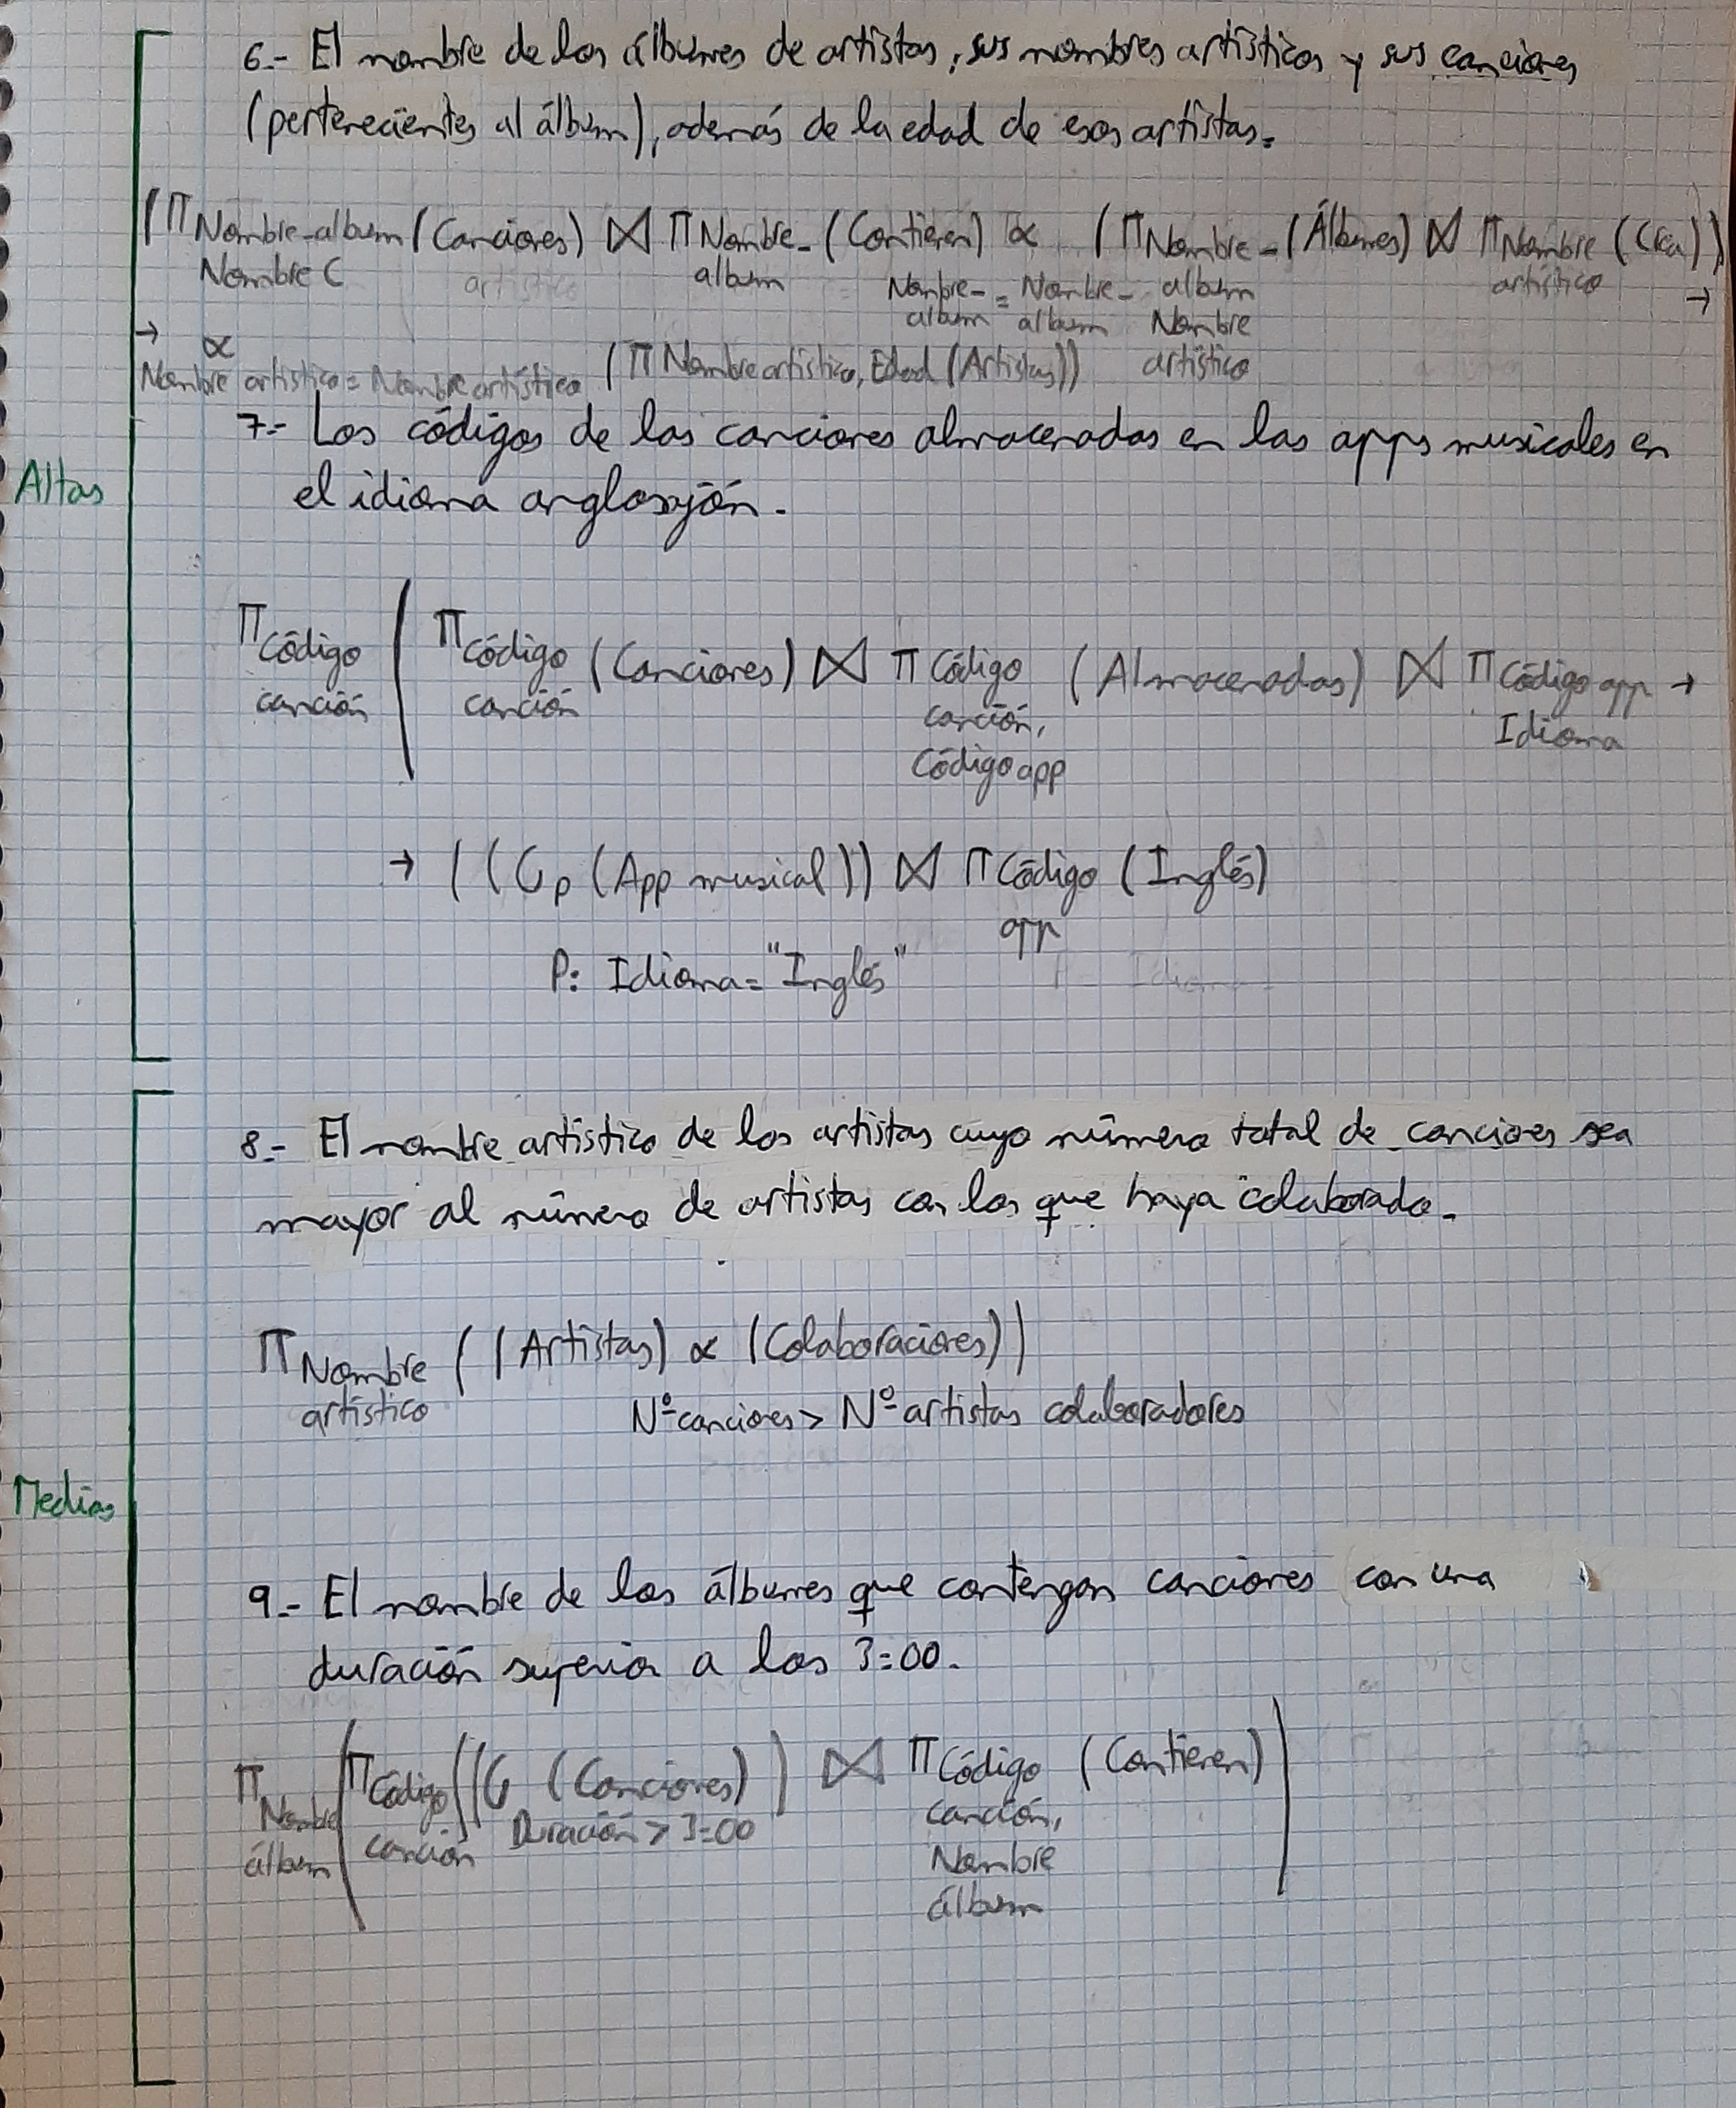 6.- El nombre de los álbumes de artistas, sus nombres artísticos y sus canciones
(pertenecientes al álbum), además de la edad de esos artistas.
(π Nombre_album (Canciones) ⋈ π Nombre_ (Contienen) ∝ (π Nombre_ (Álbumes) ⋈ π Nombre (Crea)) →
Nombre C artístico album Nombre_album = Nombre_album album Nombre artístico artístico
→ ∝ Nombre artístico = Nombre artístico (π Nombre artístico, Edad (Artistas))
7.- Los códigos de las canciones almacenadas en las apps musicales en
Altas
el idioma anglosajón.
π Código canción ( π Código canción (Canciones) ⋈ π Código canción, Código app (Almacenadas) ⋈ π Código app Idioma →
→ ((σ p (App musical)) ⋈ π Código app (Inglés)
P: Idioma = "Inglés"
8.- El nombre artístico de los artistas cuyo número total de canciones sea
mayor al número de artistas con los que haya colaborado.
π Nombre artístico ((Artistas) ∝ (Colaboraciones))
Nº canciones > Nº artistas colaboradores
Medias
9.- El nombre de los álbumes que contengan canciones con una
duración superior a los 3:00.
π Nombre álbum ( π Código canción ((σ (Canciones) ) ⋈ π Código canción, Nombre álbum (Contienen) )
Duración > 3:00